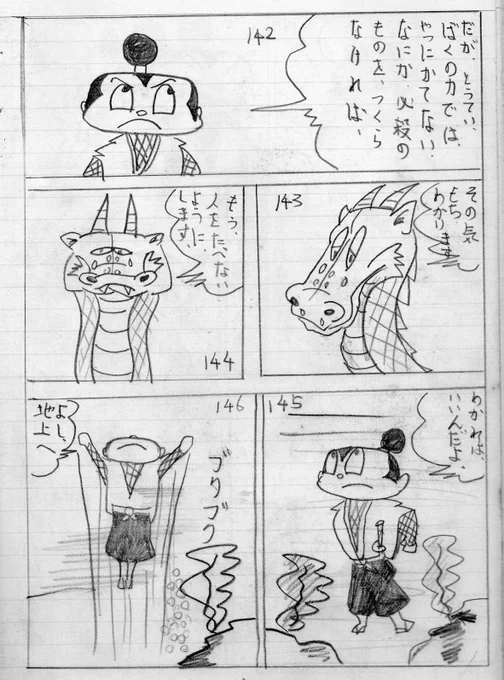 142
だが、とうてい、
ぼくの力では、
やつにかてない、
なにか、必殺の
ものを、つくら
なければ、
143
その気
もち
わかります
もう、
人をたべない
ように、
します
144
145
わかれば、
いいんだよ、
146
ブクブク
よし、
地上へ